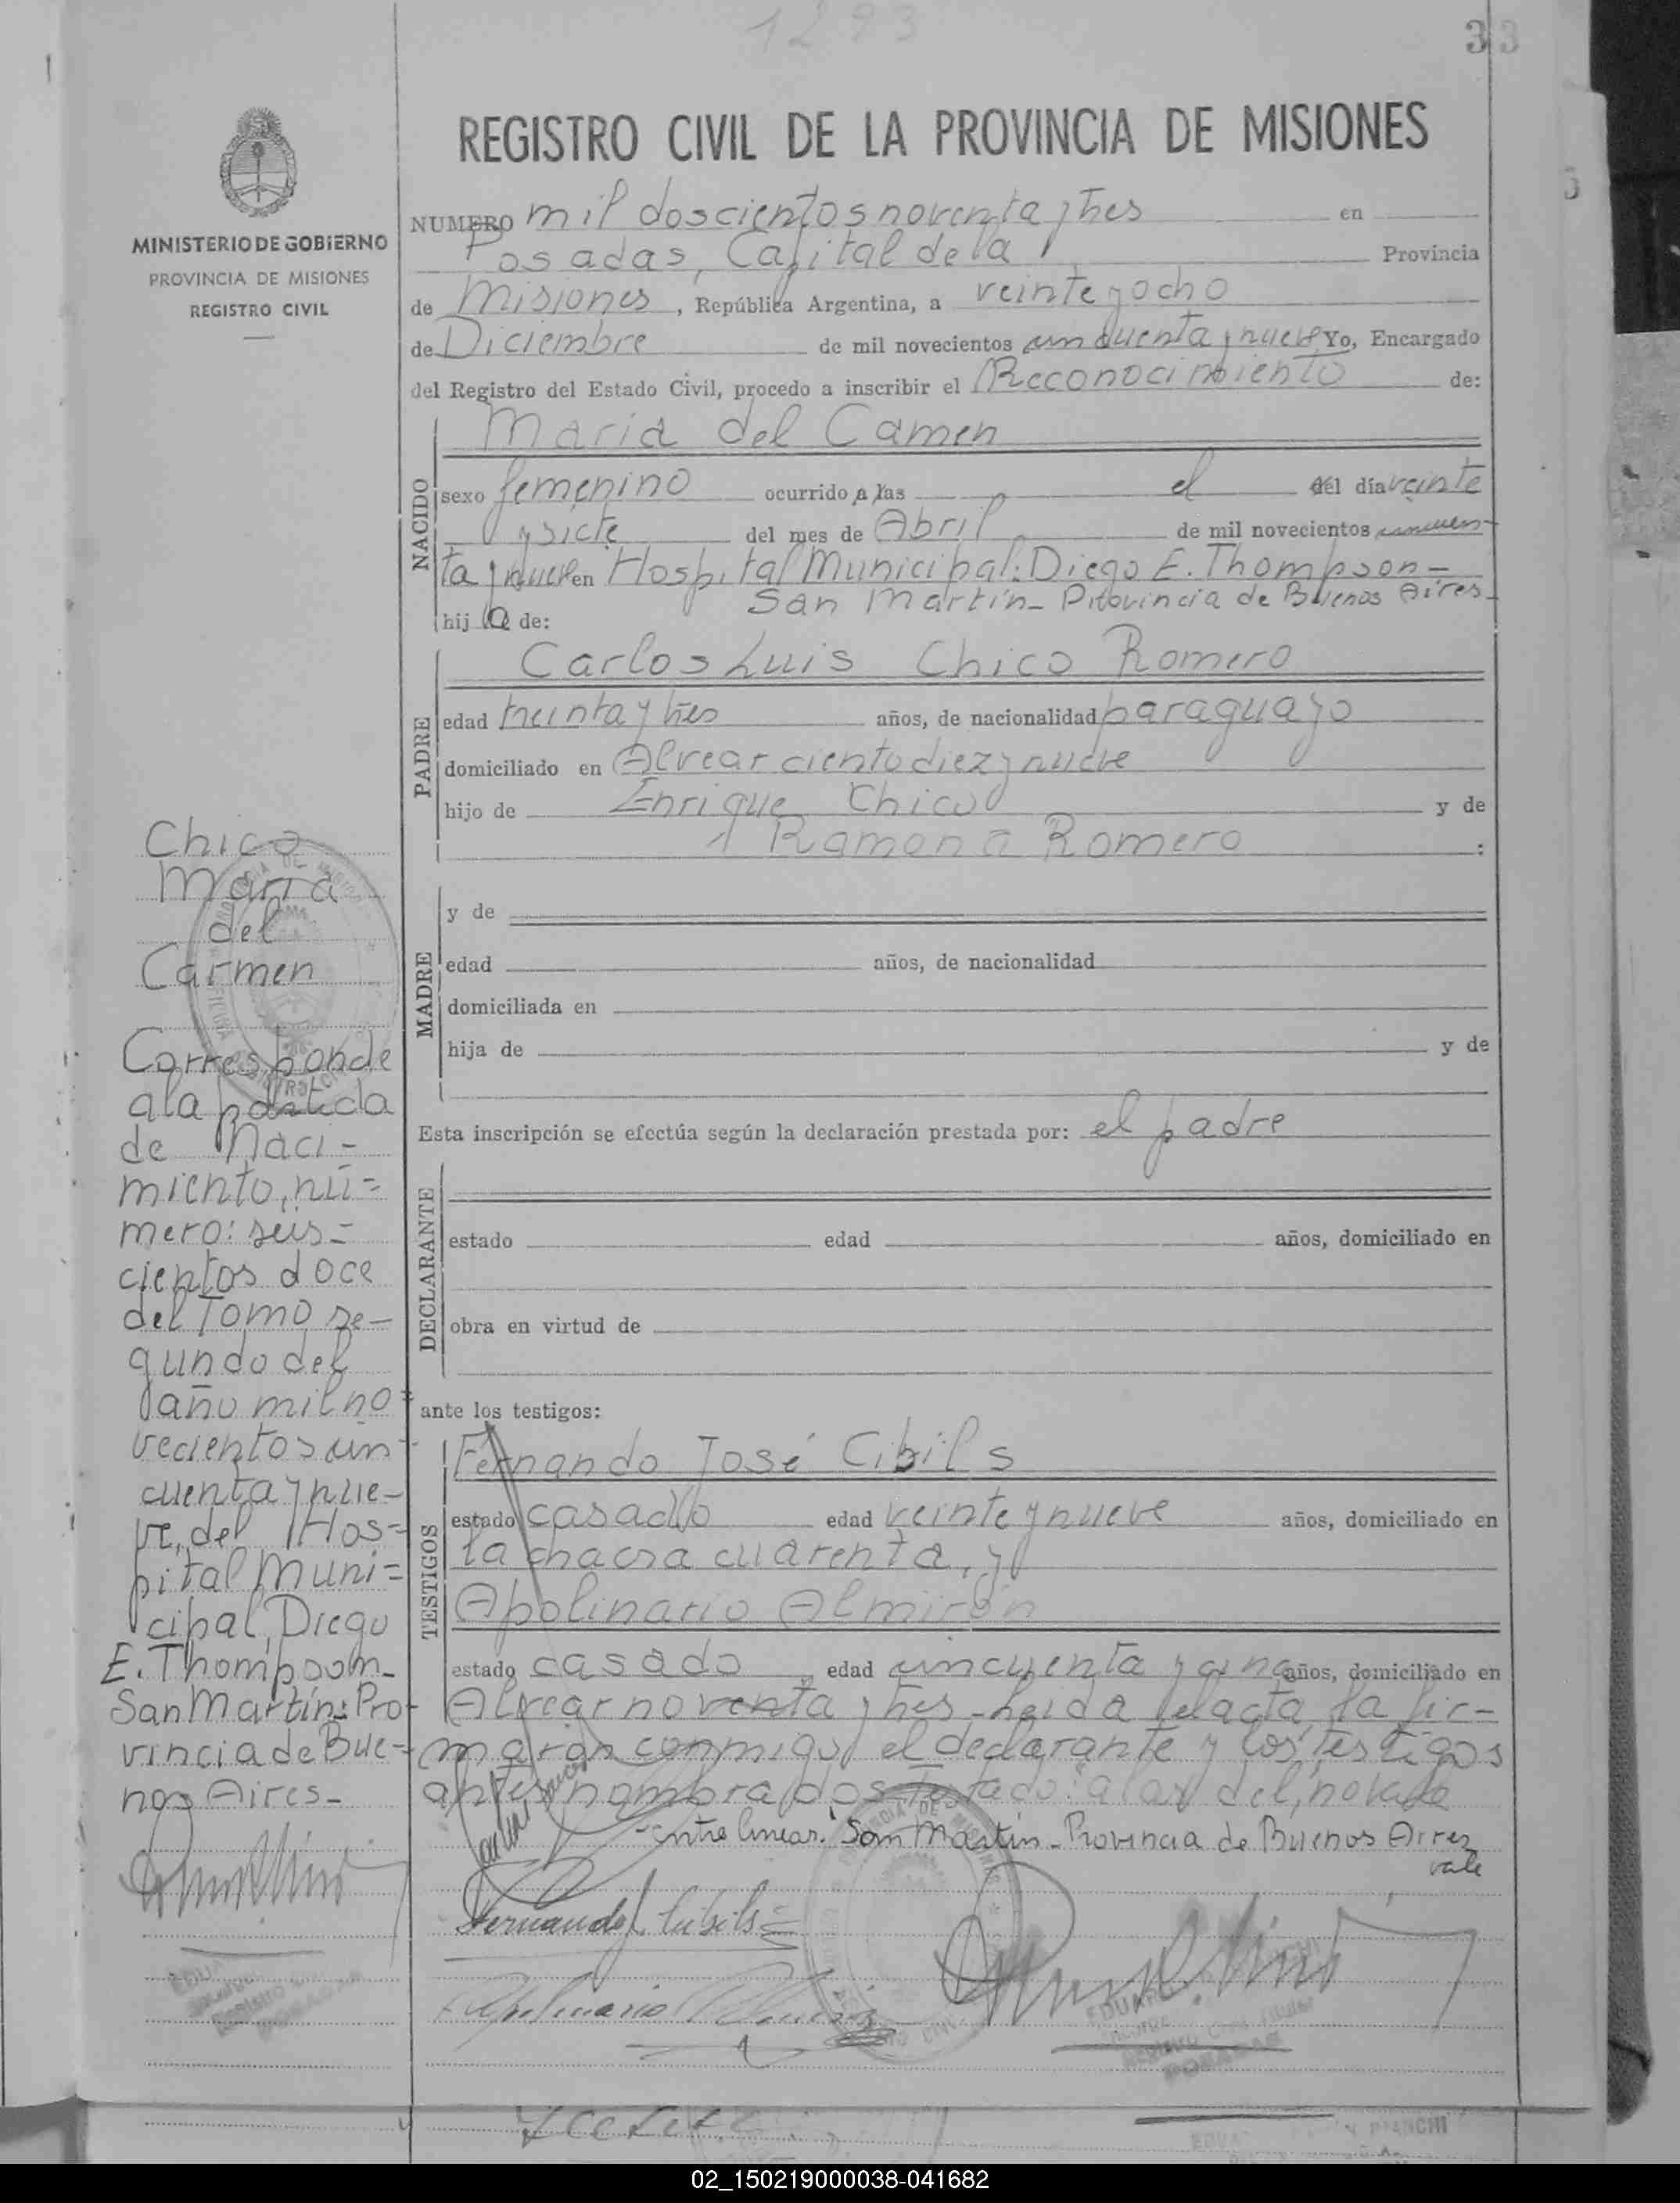 1293
33
REGISTRO CIVIL DE LA PROVINCIA DE MISIONES
MINISTERIO DE GOBIERNO
PROVINCIA DE MISIONES
REGISTRO CIVIL
NUMERO mil doscientos noventa y tres en
Posadas, Capital de la Provincia
de Misiones, República Argentina, a veinte y ocho
de Diciembre de mil novecientos cincuenta y nueve Yo, Encargado
del Registro del Estado Civil, procedo a inscribir el Reconocimiento de:
NACIDO
Maria del Camen
sexo femenino ocurrido a las el del día veinte
y siete del mes de Abril de mil novecientos cincuen-
ta y nueve en Hospital Municipal: Diego E. Thompson-
San Martín- Provincia de Buenos Aires-
hij a de:
PADRE
Carlos Luis Chico Romero
edad treinta y tres años, de nacionalidad paraguayo
domiciliado en Alvear ciento diez y nueve
hijo de Enrique Chico y de
Ramona Romero :
MADRE
y de
edad años, de nacionalidad
domiciliada en
hija de y de
Esta inscripción se efectúa según la declaración prestada por: el padre
DECLARANTE
estado edad años, domiciliado en
obra en virtud de
ante los testigos:
TESTIGOS
Fernando José Cibils
estado casado edad veinte y nueve años, domiciliado en
la chacra cuarenta, y
Apolinario Almirón
estado casado edad cincuenta y cinco años, domiciliado en
Alvear noventa y tres- Leida el acta, la fir-
marón conmigo el declarante y los testigos
antes nombrados Testado: a las del, no vale
-entre lineas: San Martín- Provincia de Buenos Aires
vale
Fernando J. Cibils
Apolinario Almirón
Chico
María
del
Carmen
Corresponde
a la partida
de Naci-
miento, nú-
mero: seis-
cientos doce
del Tomo se-
gundo del
año mil no-
vecientos cin-
cuenta y nue-
ve, del Hos-
pital Muni-
cipal, Diego
E. Thompsom-
San Martín: Pro-
vincia de Bue-
nos Aires-
02_150219000038-041682